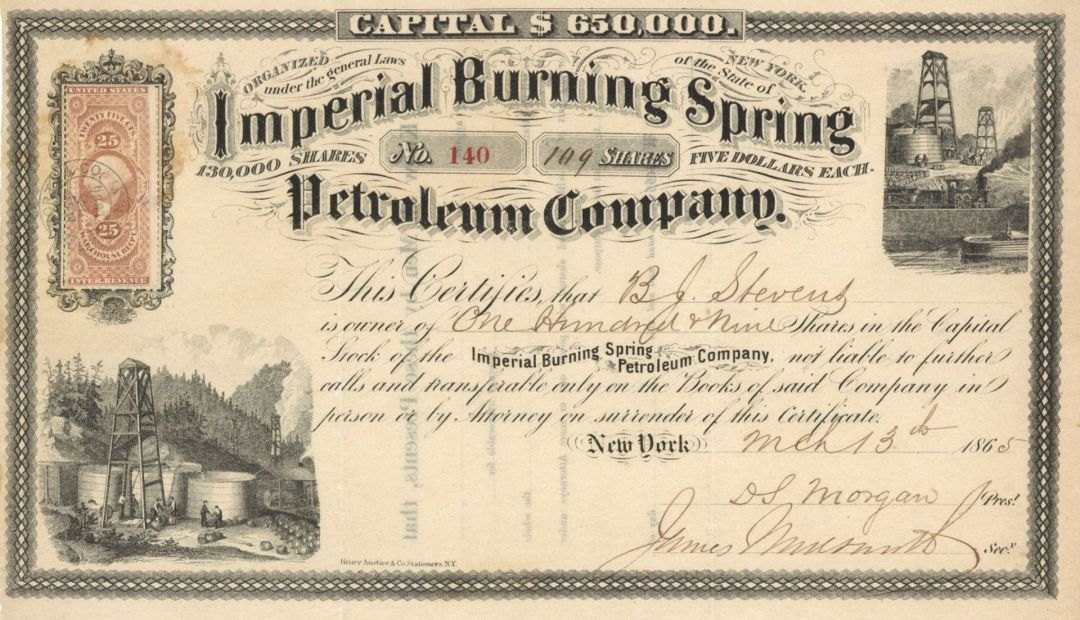 CAPITAL $ 650,000.
ORGANIZED under the general Laws of the State of NEW YORK.
Imperial Burning Spring
130,000 SHARES No. 140 109 SHARES FIVE DOLLARS EACH.
Petroleum Company.
UNITED STATES
25
25
INTER. REVENUE
This Certifies, that B J. Stevens
is owner of One Hundred & Nine Shares in the Capital
Stock of the Imperial Burning Spring Petroleum Company, not liable to further
calls and transferable only on the Books of said Company in
person or by Attorney on surrender of this Certificate.
New York Mch 13th 1865
D S. Morgan Prest.
James Secy.
Henry Anstice & Co. Stationers. N.Y.